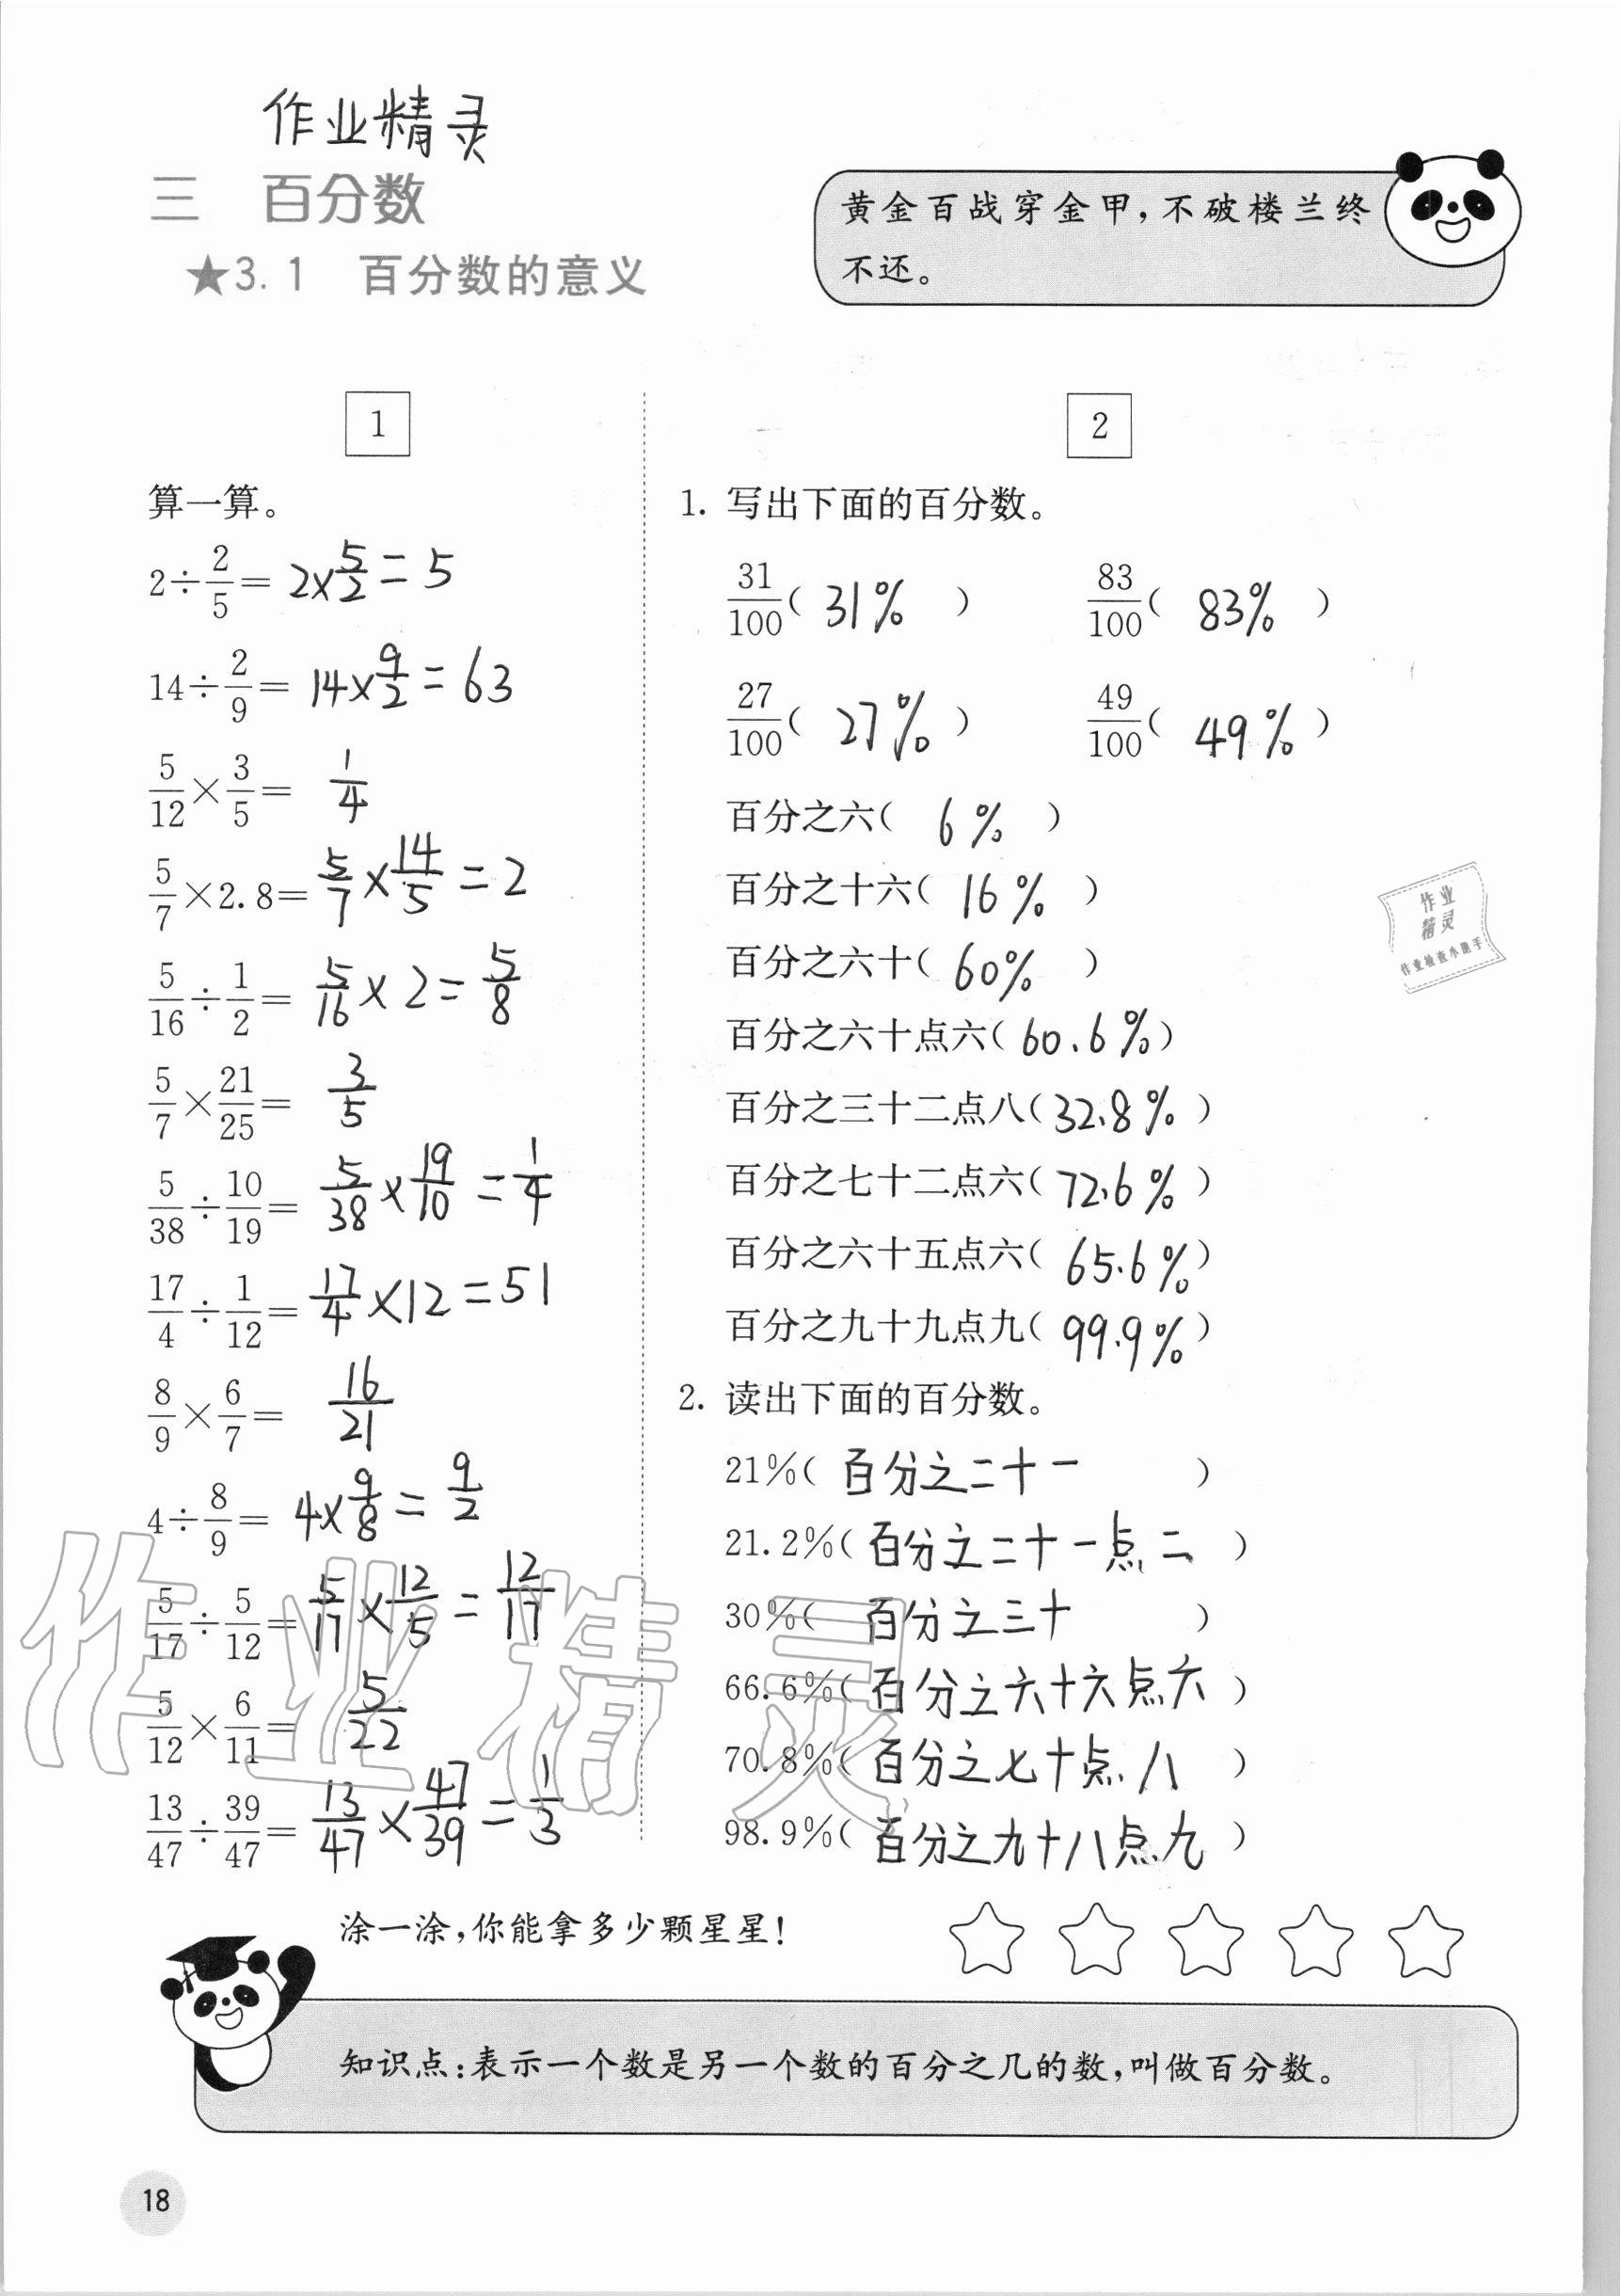 作业精灵
三 百分数
★3.1 百分数的意义
黄金百战穿金甲,不破楼兰终
不还。
1
算一算。
2÷2/5= 2×5/2=5
14÷2/9= 14×9/2=63
5/12×3/5= 1/4
5/7×2.8= 5/7×14/5=2
5/16÷1/2= 5/16×2=5/8
5/7×21/25= 3/5
5/38÷10/19= 5/38×19/10=1/4
17/4÷1/12= 17/4×12=51
8/9×6/7= 16/21
4÷8/9= 4×9/8=9/2
5/17÷5/12= 5/17×12/5=12/17
5/12×6/11= 5/22
13/47÷39/47= 13/47×47/39=1/3
2
1. 写出下面的百分数。
31/100( 31% ) 83/100( 83% )
27/100( 27% ) 49/100( 49% )
百分之六( 6% )
百分之十六( 16% )
百分之六十( 60% )
百分之六十点六( 60.6% )
百分之三十二点八( 32.8% )
百分之七十二点六( 72.6% )
百分之六十五点六( 65.6% )
百分之九十九点九( 99.9% )
2. 读出下面的百分数。
21%( 百分之二十一 )
21.2%( 百分之二十一点二 )
30%( 百分之三十 )
66.6%( 百分之六十六点六 )
70.8%( 百分之七十点八 )
98.9%( 百分之九十八点九 )
作业
精灵
作业检查小助手
作业精灵
涂一涂,你能拿多少颗星星!
知识点:表示一个数是另一个数的百分之几的数,叫做百分数。
18